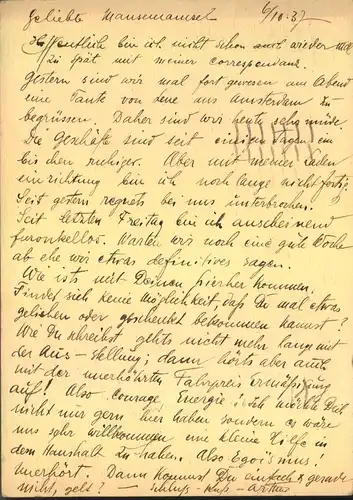 Geliebte Mausemamsel 6/10.37
Hoffentlich bin ich nicht schon auch wieder
zu spät mit meiner correspondenz.
Gestern sind wir mal fort gewesen am Abend
eine Tante von Lene aus Amsterdam zu
begrüssen. Daher sind wir heute sehr müde.
Die Geschäfte sind seit einigen Tagen ein
bischen ruhiger. Aber mit meiner Laden
einrichtung bin ich noch lange nicht fertig.
Seit gestern regnets bei uns unterbrochen.
Seit letzten Freitag bin ich anscheinend
furonkellos. Warten wir noch eine gute Woche
ab ehe wir etwas definitives sagen.
Wie ists mit Deinem hierher kommen.
Findet sich keine Möglichkeit dass Du mal etwas
geliehen oder geschenkt bekommen kannst?
Wie Du schreibst gehts nicht mehr lang mit
der Aus-stellung; dann hörts aber auch
mit der unerhörten Fahrpreis ermässigung
auf! Also Courage Energie! Ich möchte Dich
nicht nur gern hier haben sondern es wäre
uns sehr willkommen eine kleine Hilfe in
dem Haushalt zu haben. Also Egoismus!
Unerhört. Dann kommst Du einfach gerade
nicht, gelt? – Schluss – Kuss –